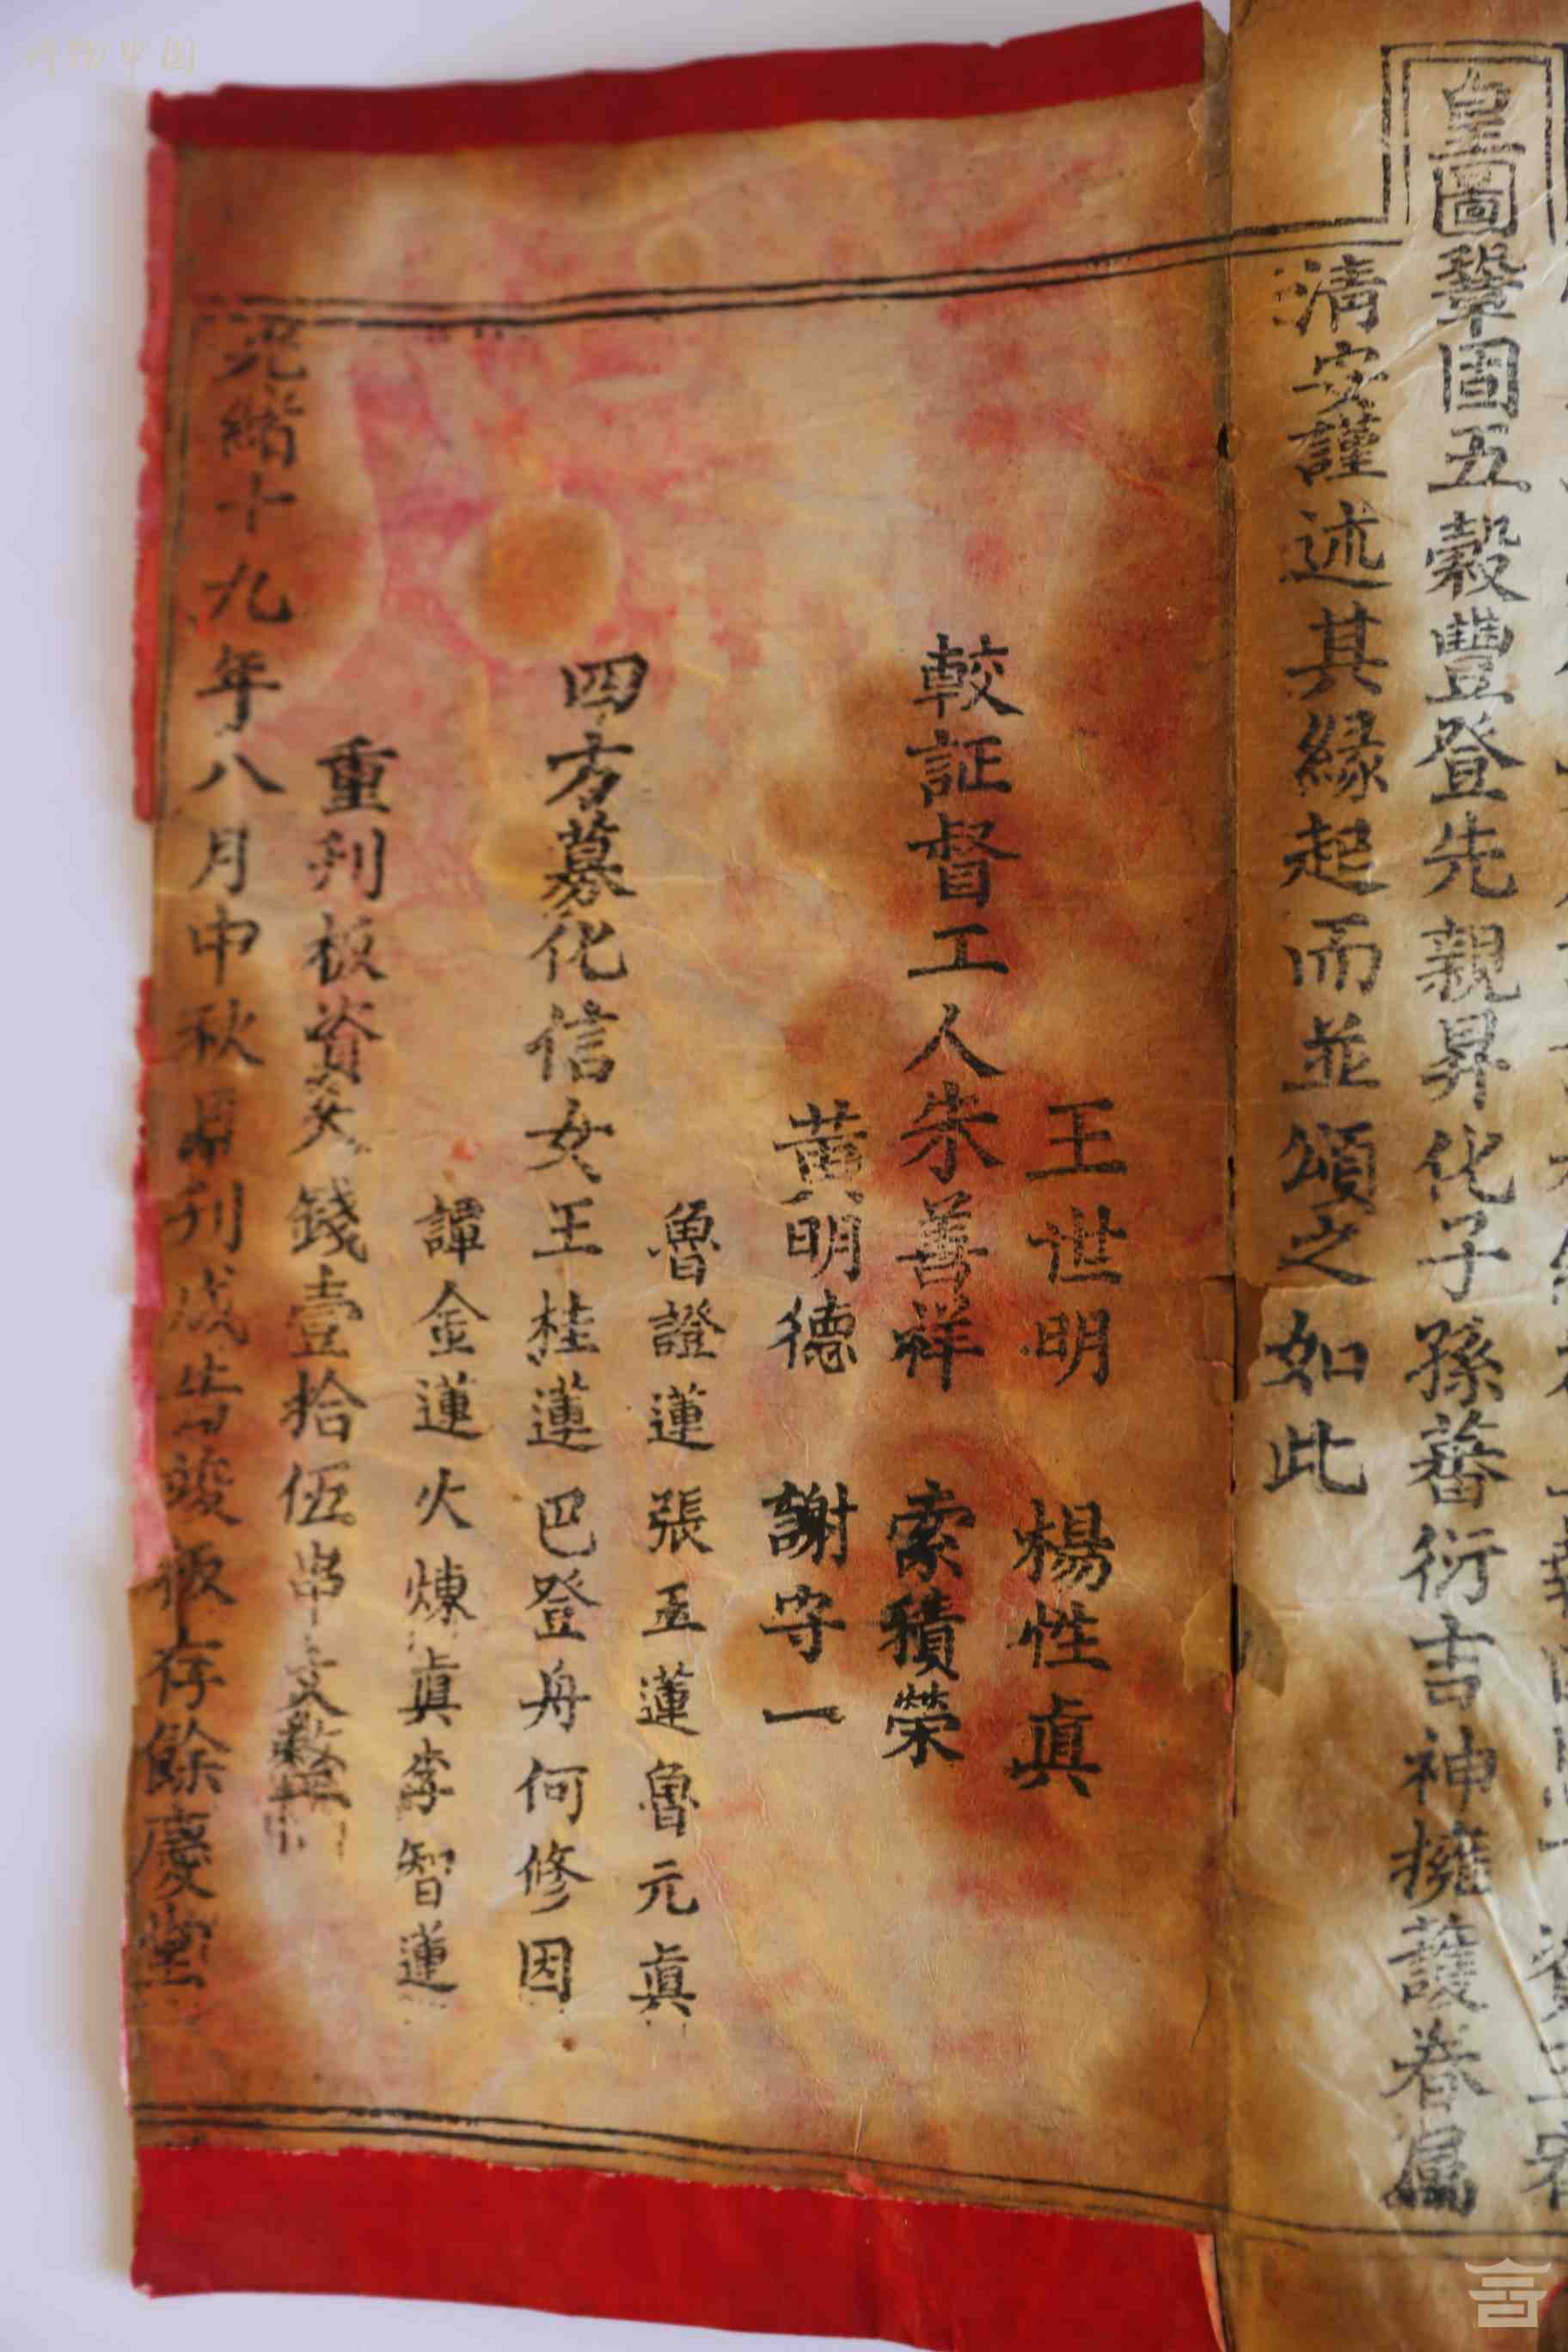 皇圖鞏固五穀豐登先親昇化子孫蕃衍吉神擁護眷屬
清安謹述其緣起而並頌之如此
王世明 楊性眞
較証督工人朱善祥 索積榮
黃明德 謝守一
魯證蓮張玉蓮魯元眞
四方募化信女王桂蓮巴登舟何修因
譚金蓮火煉眞李智蓮
重刋板資共錢壹拾伍串文整
光緒十九年八月中秋月刋成告竣板存餘慶堂